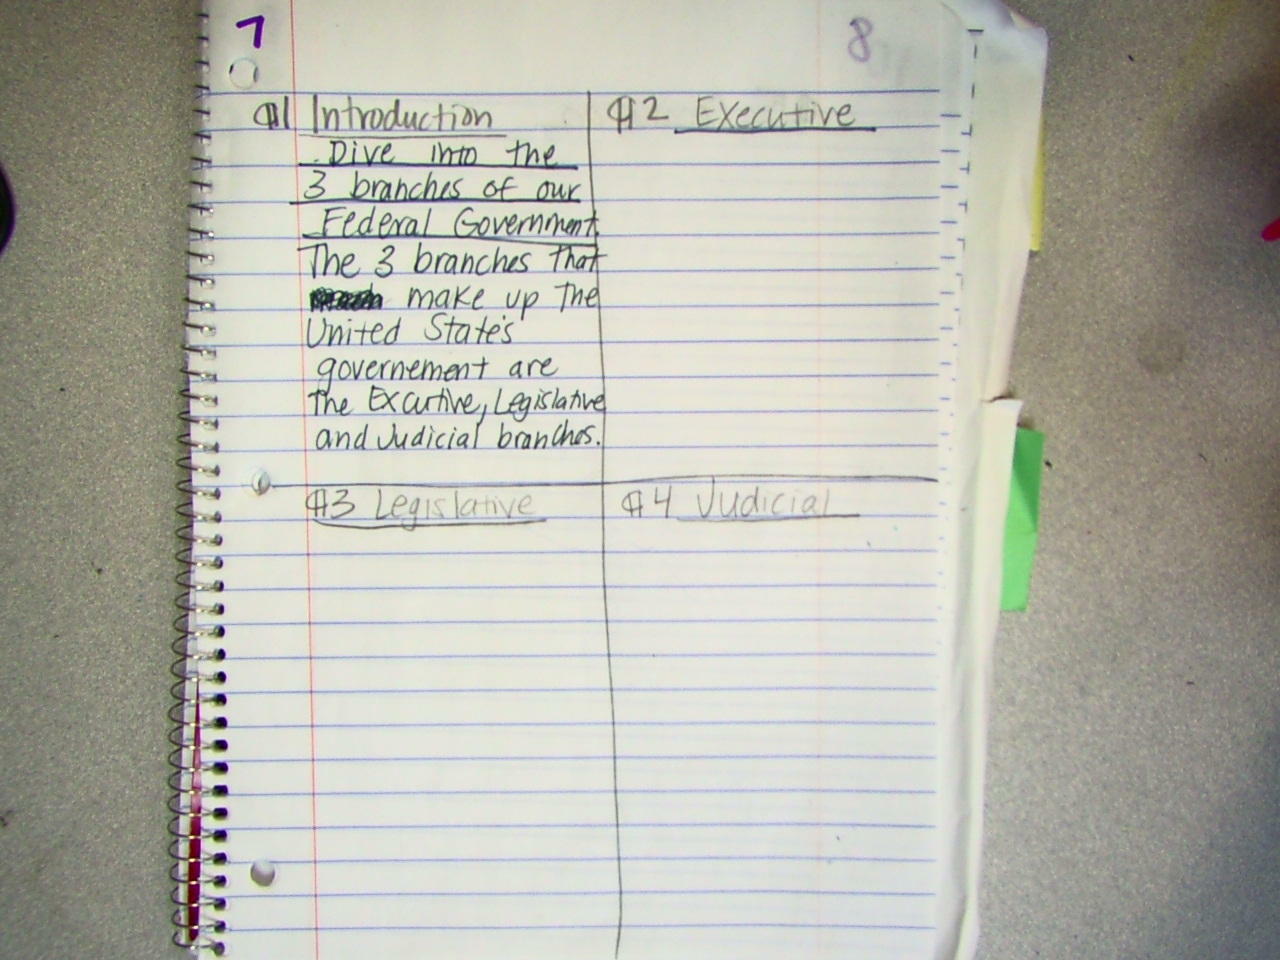 7
8
¶1 Introduction
Dive into the
3 branches of our
Federal Government
The 3 branches that
make up the
United State's
governement are
the Excutive, Legislative
and Judicial branches.
¶2 Executive
¶3 Legislative
¶4 Judicial